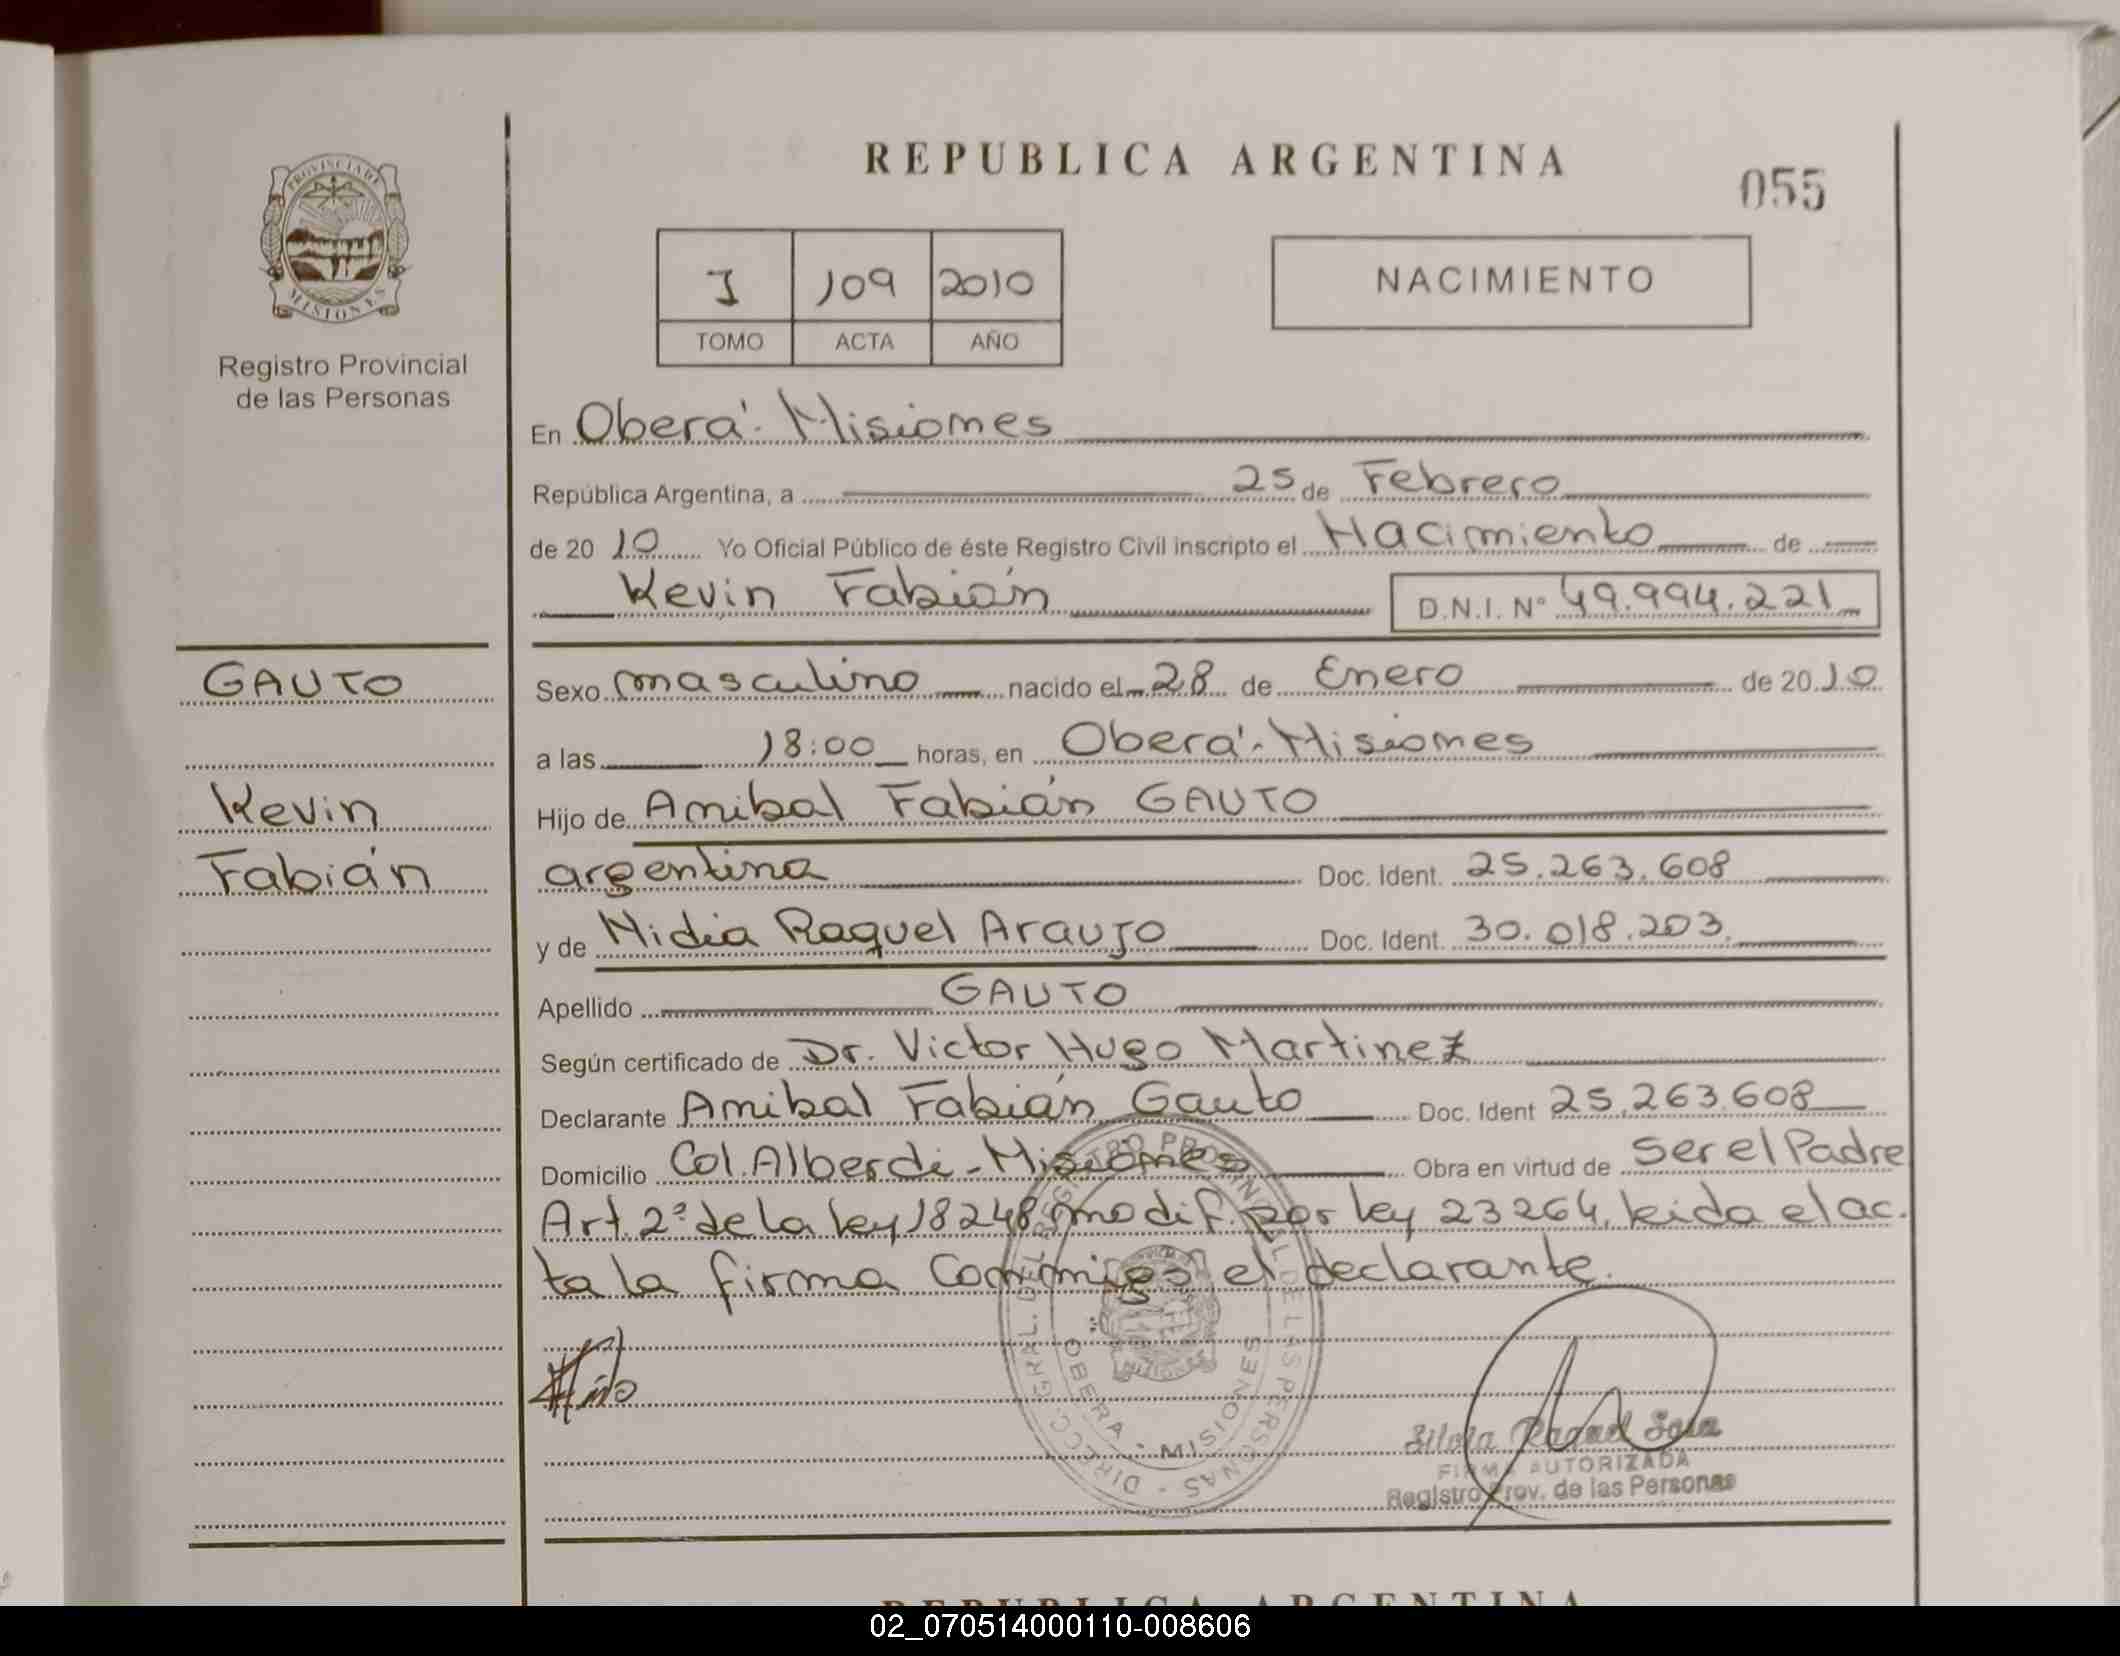 REPUBLICA ARGENTINA
055
PROVINCIA DE MISIONES
Registro Provincial
de las Personas
I 109 2010
TOMO ACTA AÑO
NACIMIENTO
En Oberá - Misiones
República Argentina, a 25 de Febrero
de 20 10 Yo Oficial Público de éste Registro Civil inscripto el Nacimiento de
Kevin Fabián D.N.I. N° 49.994.221
GAUTO
Kevin
Fabián
Sexo masculino nacido el 28 de Enero de 20 10
a las 18:00 horas, en Oberá - Misiones
Hijo de Anibal Fabián GAUTO
argentina Doc. Ident. 25.263.608
y de Nidia Raquel Araujo Doc. Ident. 30.018.203.
Apellido GAUTO
Según certificado de Dr. Victor Hugo Martinez
Declarante Anibal Fabián Gauto Doc. Ident 25.263.608
Domicilio Col. Alberdi - Misiones Obra en virtud de ser el Padre
Art. 2º de la ley 18248 modif. por ley 23264, leida el ac.
ta la firma conmigo el declarante.
DIRECC. GRAL. DEL REGISTRO PROVINCIAL DE LAS PERSONAS
OBERA - MISIONES
FIRMA AUTORIZADA
Registro Prov. de las Personas
REPUBLICA ARGENTINA
02_070514000110-008606